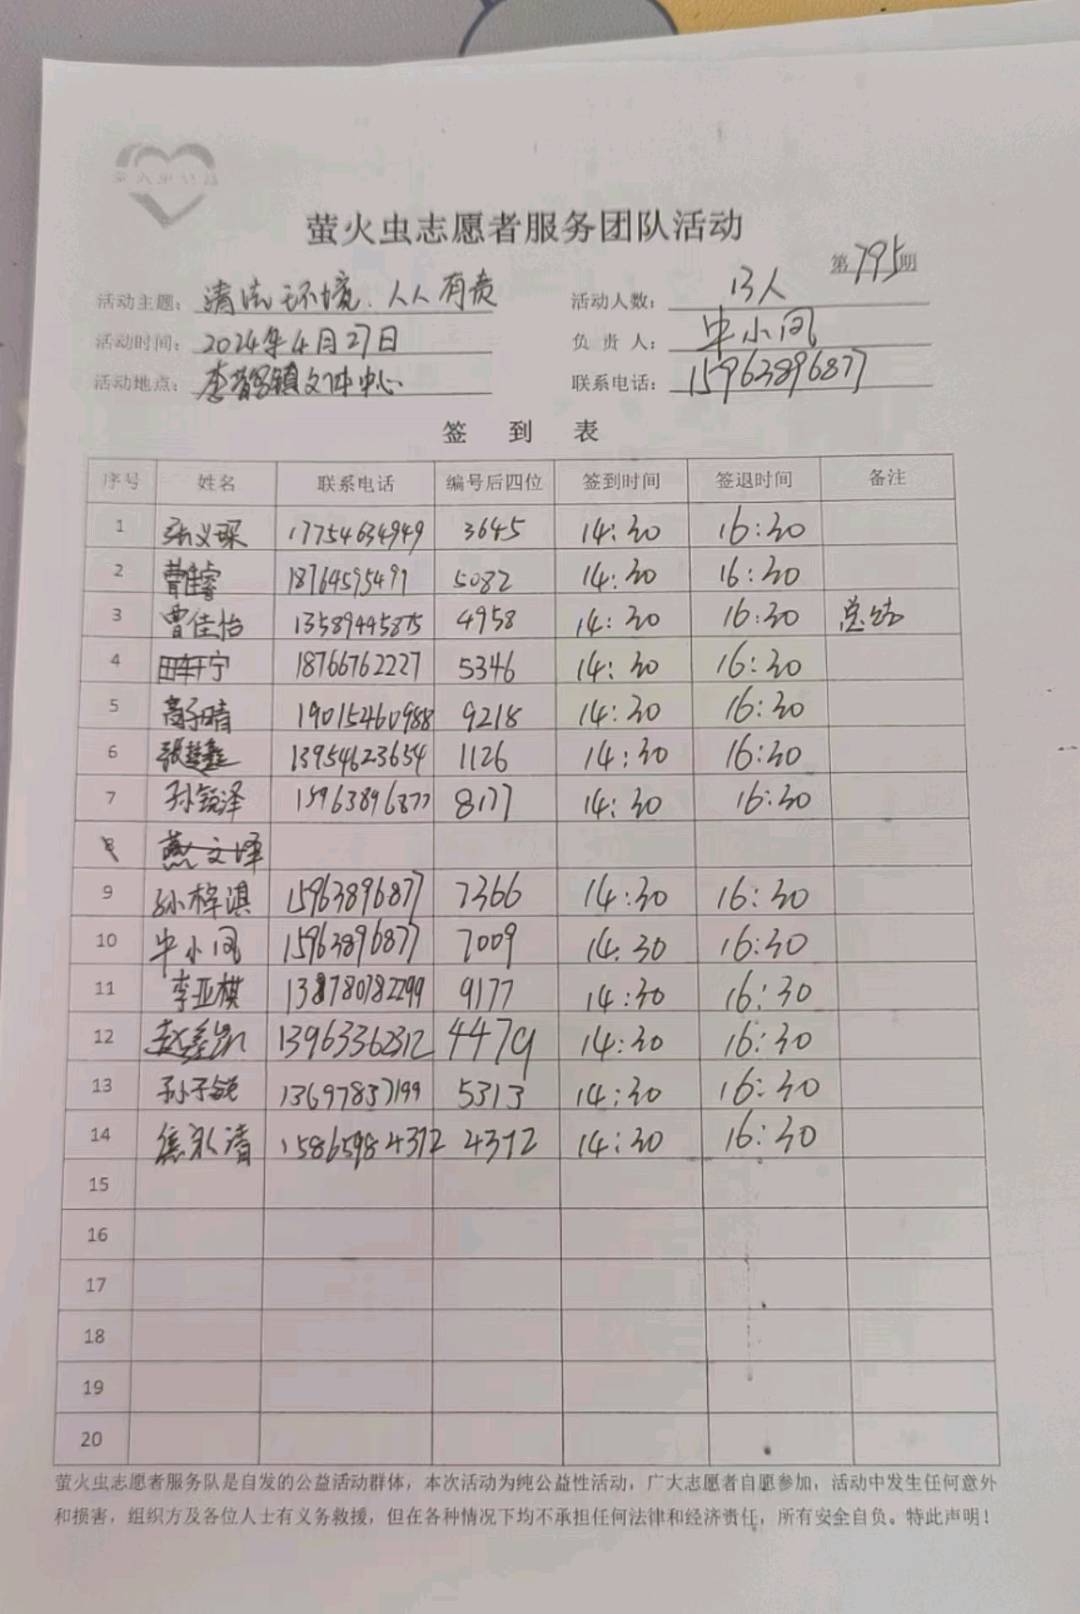 萤火虫志愿者服务团队活动
第795期
活动主题：清洁环境、人人有责 活动人数：13人
活动时间：2024年4月27日 负责人：牛小风
活动地点：李鹊镇文体中心 联系电话：15963896877
签到表
序号 姓名 联系电话 编号后四位 签到时间 签退时间 备注
1 张义琛 17754634949 3645 14:30 16:30
2 曹佳睿 18764595497 5082 14:30 16:30
3 曹佳怡 13589445875 4958 14:30 16:30 总结
4 宁 18766762227 5346 14:30 16:30
5 高子晴 19015460988 9218 14:30 16:30
6 张 13954623654 1126 14:30 16:30
7 孙锐泽 15963896877 8177 14:30 16:30
8 燕文译
9 孙梓淇 15963896877 7366 14:30 16:30
10 牛小风 15963896877 7009 14:30 16:30
11 李亚棋 9177 14:30 16:30
12 赵鑫凯 13963362312 4479 14:30 16:30
13 孙子锐 13697837199 5313 14:30 16:30
14 焦永清 15865984372 4372 14:30 16:30
15
16
17
18
19
20
萤火虫志愿者服务队是自发的公益活动群体，本次活动为纯公益性活动，广大志愿者自愿参加，活动中发生任何意外
和损害，组织方及各位人士有义务救援，但在各种情况下均不承担任何法律和经济责任，所有安全自负。特此声明！